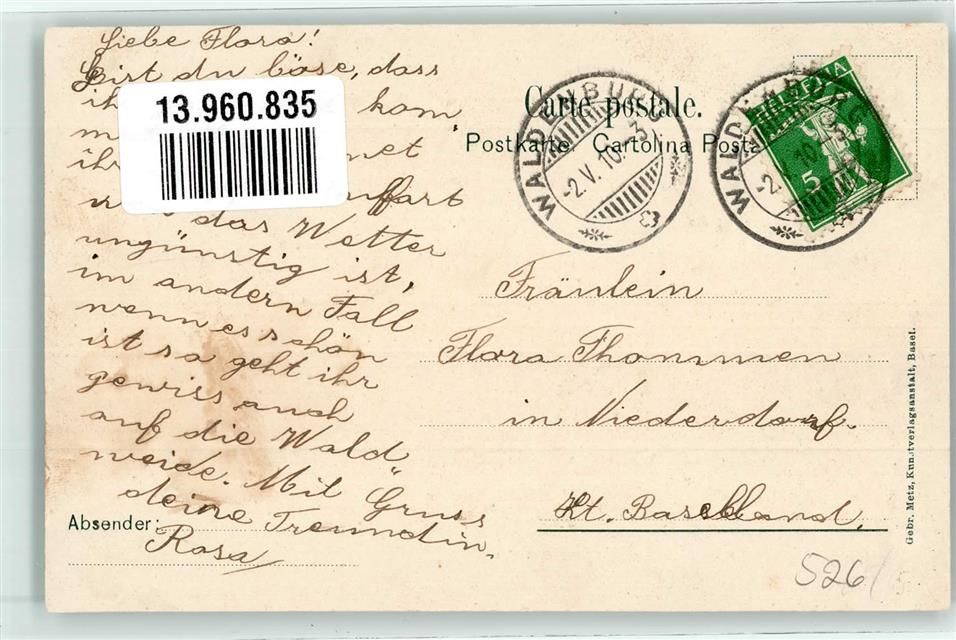 Liebe Flora!
Bist du böse, dass
ih kom
m
ih met
u ffart
das Wetter
ungünstig ist,
im andern Fall
wenn es schön
ist so geht ihr
gewiss auch
auf die Wald
weide. Mit Gruss
deine Freundin.
Absender:
Rosa
13.960.835
Carte postale.
Postkarte Cartolina Posta
WALDENBURG
-2.V.10.-3
WALDENBURG
-2. 10.-3
HELVETIA
5
Fräulein
Flora Thommen
in Niederdorf.
Kt. Baselland.
Gebr. Metz, Kunstverlagsanstalt, Basel.
526